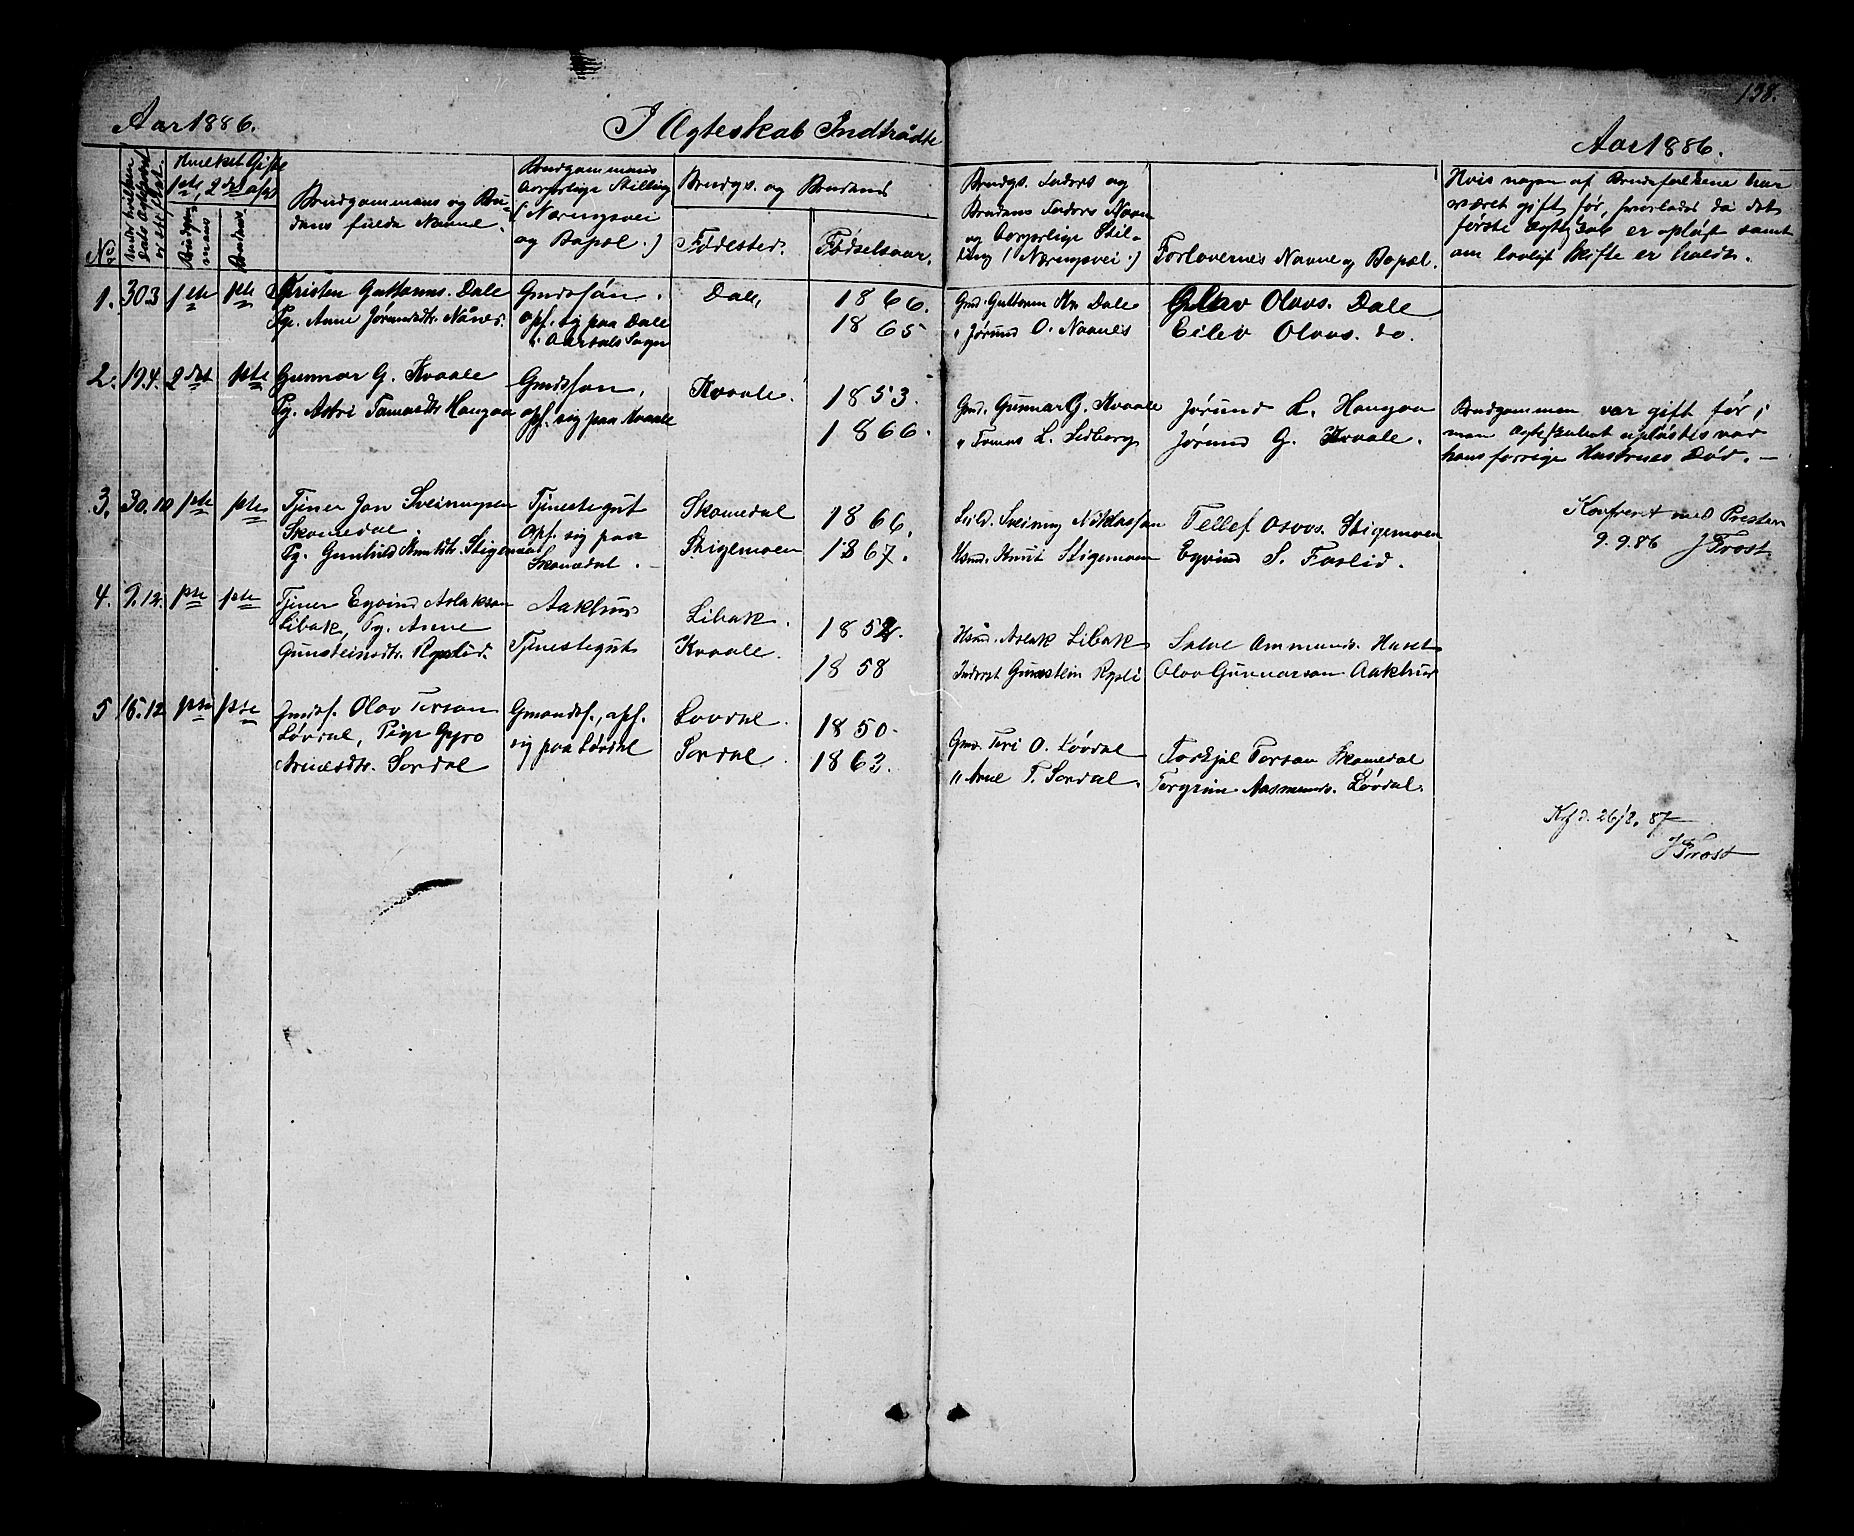 138.
Aar 1886.
I Ægteskab Indtrådte
Aar 1886.
No
under hvilken Dato
Hvilket Gifte
1ste, 2det
Brudgommans
Brudens
Brudgommans og Bru-
dens fulde Navne.
Brudgommans
borgerlige Stilling
(Næringsvei
og Bopæl.)
Brudgs. og Brudens
Fødested.
Fødselsaar.
Brudgs. Faders og
Brudens Faders Navn
og borgerlige Stil-
ling (Næringsvei.)
Forlovernes Navne og Bopæl.
Hvis nogen af Brudefolkene har
været gift før, hvorledes da det
første Ægteskab er opløst samt
om lovligt Skifte er holdt.
1. 30.3 1ste 1ste Kristen Guttorms. Dale
Pg. Anne Jørundsdtr. Nånes.
Gmdssøn.
opf. sig paa Dale
i Aardals Sogn
Dale,
1866.
1865
Gmd. Guttorm Kr. Dale
" Jørund O. Naanes
Olav Olavs. Dale
Eilev Olavs. do.
2. 19.4. 2det 1ste Gunnar G. Kvaale
Pg. Astri Tomasdtr. Haugaa
Gmdssøn,
opf. sig paa Kvaale
Kvaale.
1853.
1866.
Gmd. Gunnar G. Kvaale
" Tomas L.
Jørund L. Haugaa
Jørund G. Kvaale.
Brudgommen var gift før;
men Ægteskabet opløstes ved
hans forrige Hustrues Død. —
3. 30.10 1ste 1ste Tjener Jon Sveinungsen
Skomedal.
Pg. Gunhild Knudsdtr. Stigemoen
Tjenestegut
opf. sig paa
Skomedal. —
Skomedal
Stigemoen
1866.
1867.
Sveinung Niklassøn
Husmd. Knut Stigemoen
Tellef Olavs. Stigemoen
Eyvind S. Faslid.
Konfereret med Presten
9.9.86 J Frost
4. 9.12. 1ste 1ste Tjener Eyvind Aslaksen
Libak, Pg. Anne
Gunsteinsdtr. Rysli.
Aakhus
Tjenestegut
Libak.
Kvaale.
1852.
1858
Husmd. Aslak Libak
Inderst Gunstein Rysli
Salve Ammunds. Huset
Olav Gunnarson Aakhus
5 15.12 1ste 1ste Gmdsf. Olav Terson
Løvdal, Pige Gyro
Arnesdtr. Sordal
Gmandsf., opf.
sig paa Løvdal
Løvdal.
Sordal.
1850.
1863.
Gmd. Teri O. Løvdal
" Arne T. Sordal.
Torkjel Terson Skomedal
Tergrim Aasmunds. Løvdal.
Kfd. 26/2. 87
J Frost